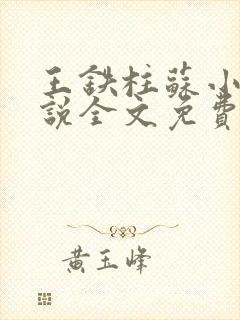 王鉄柱蘇小
說全文免費
黄玉峰